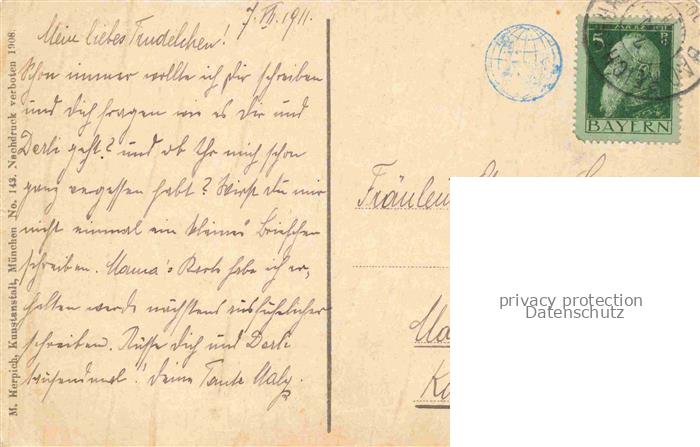 7. VII. 1911.
Mein liebes Trudelchen!
Schon immer wollte ich Dir schreiben
und Dich fragen wie es Dir und
Derli geht? und ob Ihr mich schon
ganz vergessen habt? Wirst du mir
nicht einmal ein kleines Briefchen
schreiben. Mama's Karte habe ich er-
halten werde nächstens ausführlicher
schreiben. Küsse dich und Derli
tausendmal! deine Tante Maly.
M. Herpich, Kunstanstalt, München No. 143. Nachdruck verboten 1908.
5
BAYERN
Fräulein
privacy protection
Datenschutz